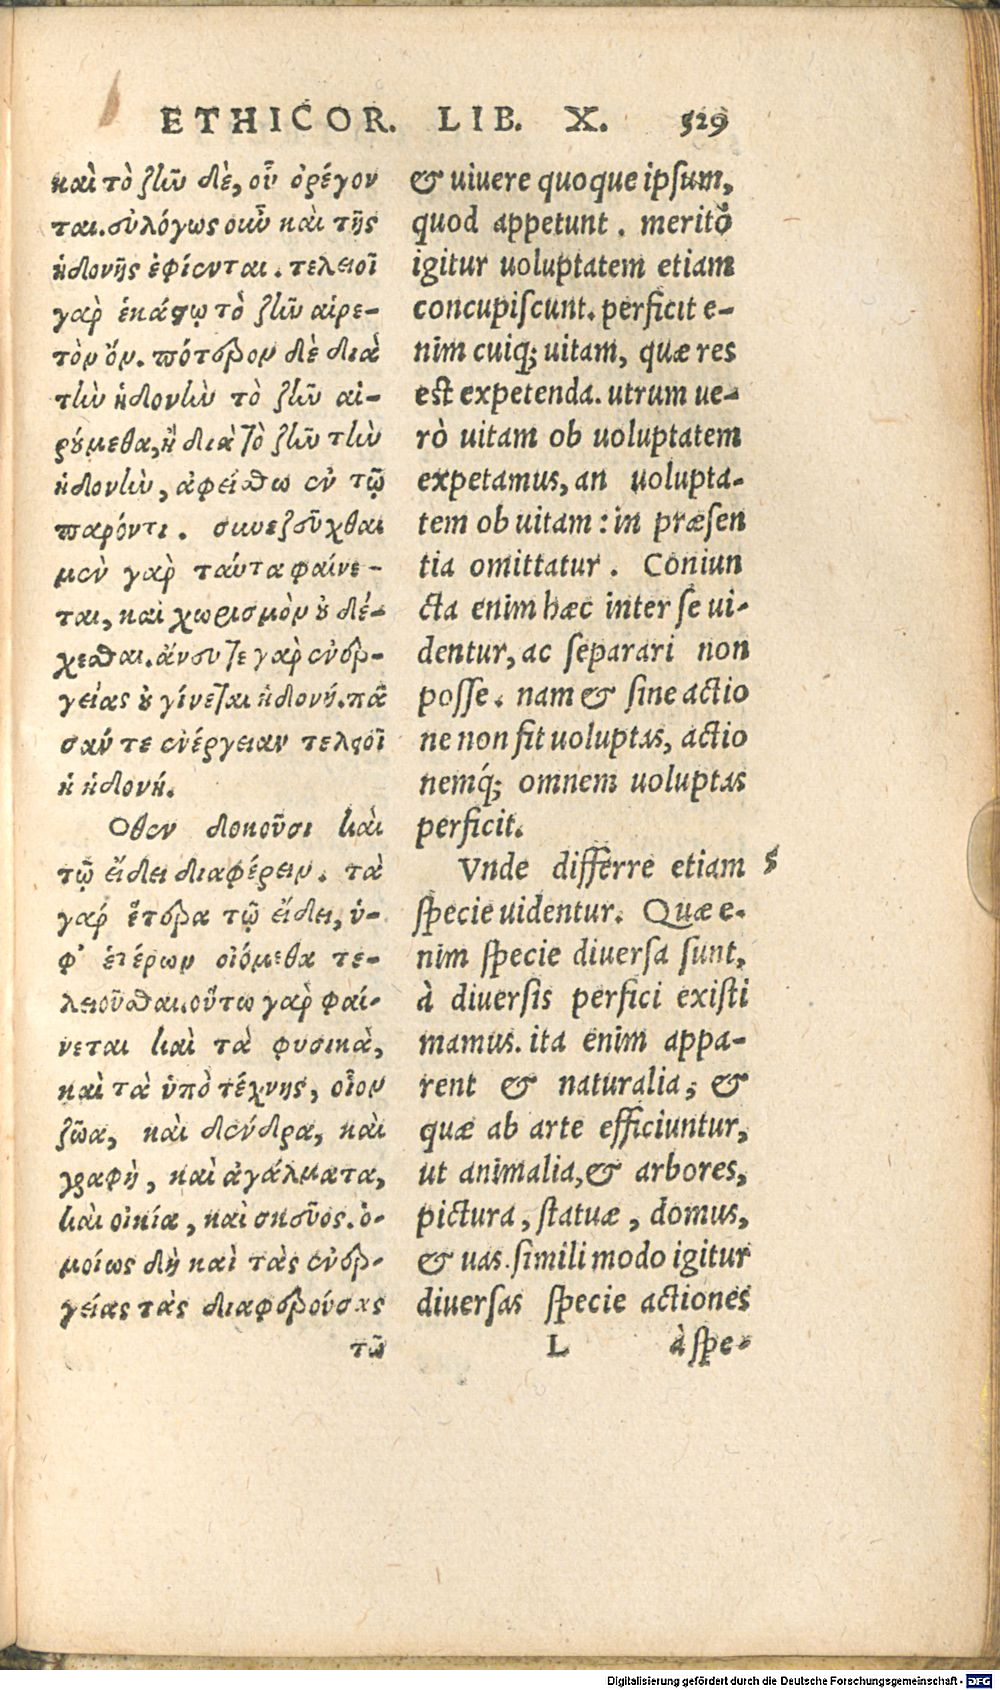 ETHICOR. LIB. X. 529
καὶ τὸ ζῆν δὲ, οὗ ὀρέγον
ται. εὐλόγως οὖν καὶ τῆς
ἡδονῆς ἐφίενται. τελειοῖ
γὰρ ἑκάστῳ τὸ ζῆν αἱρε-
τὸν ὄν. πότερον δὲ διὰ
τὴν ἡδονὴν τὸ ζῆν αἱ-
ρούμεθα, ἢ διὰ τὸ ζῆν τὴν
ἡδονὴν, ἀφείσθω ἐν τῷ
παρόντι. συνεζεῦχθαι
μὲν γὰρ ταύτα φαίνε-
ται, καὶ χωρισμὸν οὐ δέ-
χεσθαι. ἄνευ τε γὰρ ἐνερ-
γείας οὐ γίνεται ἡδονή. πᾶ
σαν τε ἐνέργειαν τελειοῖ
ἡ ἡδονή.
Οθεν δοκοῦσι καὶ
τῷ εἴδει διαφέρειν. τὰ
γὰρ ἕτερα τῷ εἴδει, ὑ-
φ' ἑτέρων οἰόμεθα τε-
λειοῦσθαι. οὕτω γὰρ φαί-
νεται καὶ τὰ φυσικὰ,
καὶ τὰ ὑπὸ τέχνης, οἷον
ζῶα, καὶ δένδρα, καὶ
γραφὴ, καὶ ἀγάλματα,
καὶ οἰκία, καὶ σκεῦος. ὁ-
μοίως δὴ καὶ τὰς ἐνερ-
γείας τὰς διαφερούσας
τῷ
& uiuere quoque ipsum,
quod appetunt. meritò
igitur uoluptatem etiam
concupiscunt. perficit e-
nim cuiq; uitam, quæ res
est expetenda. utrum ue-
rò uitam ob uoluptatem
expetamus, an uolupta-
tem ob uitam: in præsen
tia omittatur. Coniun
cta enim hæc inter se ui-
dentur, ac separari non
posse. nam & sine actio
ne non fit uoluptas, actio
nemq́; omnem uoluptas
perficit.
Vnde differre etiam 5
specie uidentur. Quæ e-
nim specie diuersa sunt,
à diuersis perfici existi
mamus. ita enim appa-
rent & naturalia, &
quæ ab arte efficiuntur,
ut animalia, & arbores,
pictura, statuæ, domus,
& uas. simili modo igitur
diuersas specie actiones
L à spe-
Digitalisierung gefördert durch die Deutsche Forschungsgemeinschaft - DFG